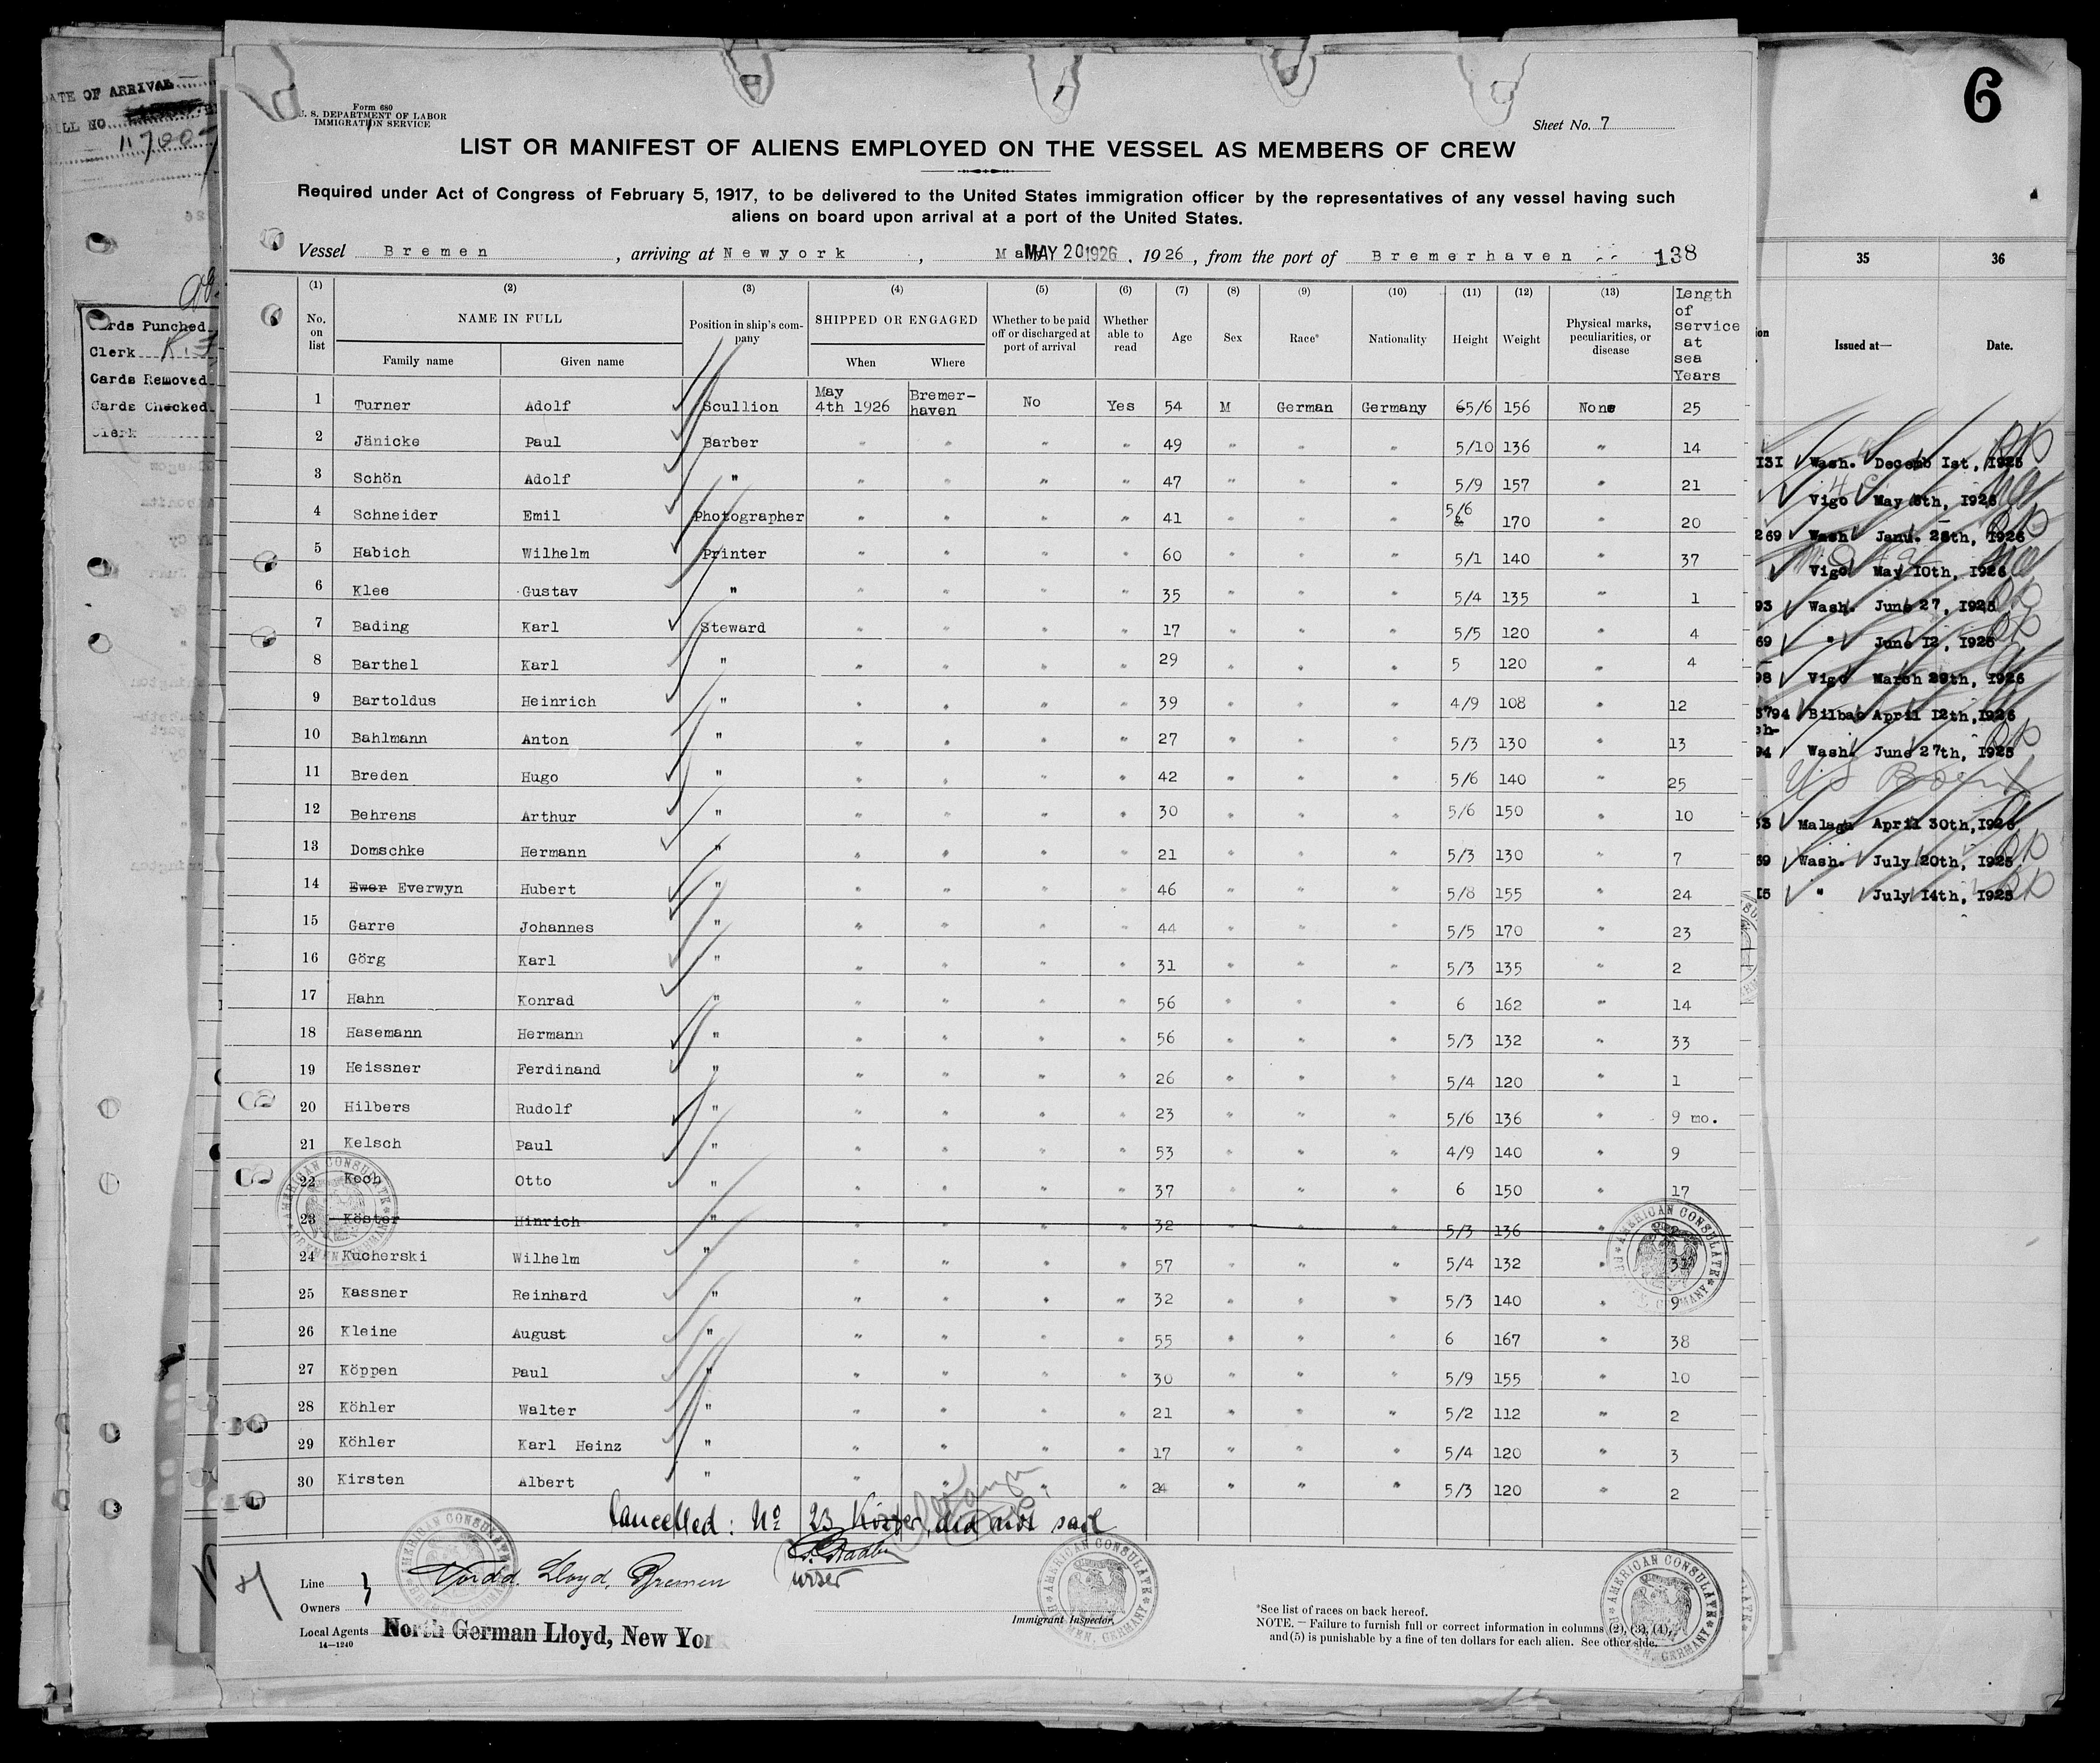 6
DATE OF ARRIVAL
BILL NO
11700
Cards Punched
Clerk
Cards Removed
Cards Checked
Clerk
Form 680
U. S. DEPARTMENT OF LABOR
IMMIGRATION SERVICE
Sheet No. 7
LIST OR MANIFEST OF ALIENS EMPLOYED ON THE VESSEL AS MEMBERS OF CREW
Required under Act of Congress of February 5, 1917, to be delivered to the United States immigration officer by the representatives of any vessel having such
aliens on board upon arrival at a port of the United States.
Vessel Bremen , arriving at Newyork , MAY 20 1926 , 1926, from the port of Bremerhaven 138
(1) (2) (3) (4) (5) (6) (7) (8) (9) (10) (11) (12) (13) Length of service at sea Years
No. on list NAME IN FULL Position in ship's company SHIPPED OR ENGAGED Whether to be paid off or discharged at port of arrival Whether able to read Age Sex Race* Nationality Height Weight Physical marks, peculiarities, or disease
Family name Given name When Where
1 Turner Adolf Scullion May 4th 1926 Bremer-haven No Yes 54 M German Germany 5/6 156 None 25
2 Jänicke Paul Barber " " " " 49 " " " 5/10 136 " 14
3 Schön Adolf " " " " " 47 " " " 5/9 157 " 21
4 Schneider Emil Photographer " " " " 41 " " " 5/6 170 " 20
5 Habich Wilhelm Printer " " " " 60 " " " 5/1 140 " 37
6 Klee Gustav " " " " " 35 " " " 5/4 135 " 1
7 Bading Karl Steward " " " " 17 " " " 5/5 120 " 4
8 Barthel Karl " " " " " 29 " " " 5 120 " 4
9 Bartoldus Heinrich " " " " " 39 " " " 4/9 108 " 12
10 Bahlmann Anton " " " " " 27 " " " 5/3 130 " 13
11 Breden Hugo " " " " " 42 " " " 5/6 140 " 25
12 Behrens Arthur " " " " " 30 " " " 5/6 150 " 10
13 Domschke Hermann " " " " " 21 " " " 5/3 130 " 7
14 Ewer Everwyn Hubert " " " " " 46 " " " 5/8 155 " 24
15 Garre Johannes " " " " " 44 " " " 5/5 170 " 23
16 Görg Karl " " " " " 31 " " " 5/3 135 " 2
17 Hahn Konrad " " " " " 56 " " " 6 162 " 14
18 Hasemann Hermann " " " " " 56 " " " 5/3 132 " 33
19 Heissner Ferdinand " " " " " 26 " " " 5/4 120 " 1
20 Hilbers Rudolf " " " " " 23 " " " 5/6 136 " 9 mo.
21 Kelsch Paul " " " " " 53 " " " 4/9 140 " 9
22 Koch Otto " " " " " 37 " " " 6 150 " 17
23 Köster Hinrich " " " " " 32 " " " 5/3 136 "
24 Kucherski Wilhelm " " " " " 57 " " " 5/4 132 " 31
25 Kassner Reinhard " " " " " 32 " " " 5/3 140 " 9
26 Kleine August " " " " " 55 " " " 6 167 " 38
27 Köppen Paul " " " " " 30 " " " 5/9 155 " 10
28 Köhler Walter " " " " " 21 " " " 5/2 112 " 2
29 Köhler Karl Heinz " " " " " 17 " " " 5/4 120 " 3
30 Kirsten Albert " " " " " 24 " " " 5/3 120 " 2
Cancelled: No 23 Köster, did not sail
Line Nordd. Lloyd, Bremen
Owners
Local Agents North German Lloyd, New York
14—1240
Immigrant Inspector.
*See list of races on back hereof.
NOTE. — Failure to furnish full or correct information in columns (2), (3), (4),
and (5) is punishable by a fine of ten dollars for each alien. See other side.
AMERICAN CONSULATE BREMEN, GERMANY
AMERICAN CONSULATE BREMEN, GERMANY
AMERICAN CONSULATE BREMEN, GERMANY
AMERICAN CONSULATE BREMEN, GERMANY
AMERICAN CONSULATE BREMEN, GERMANY
35 36
Issued at— Date.
131 Wash. Decemb 1st, 1925
Vigo May 8th, 1926
269 Wash Janu. 28th, 1926
Vigo May 10th, 1926
93 Wash. June 27, 1925
69 " June 12, 1925
98 Vigo March 29th, 1926
3794 Bilbao April 12th, 1926
94 Wash. June 27th, 1925
33 Malaga April 30th, 1926
69 Wash. July 20th, 1925
15 " July 14th, 1925